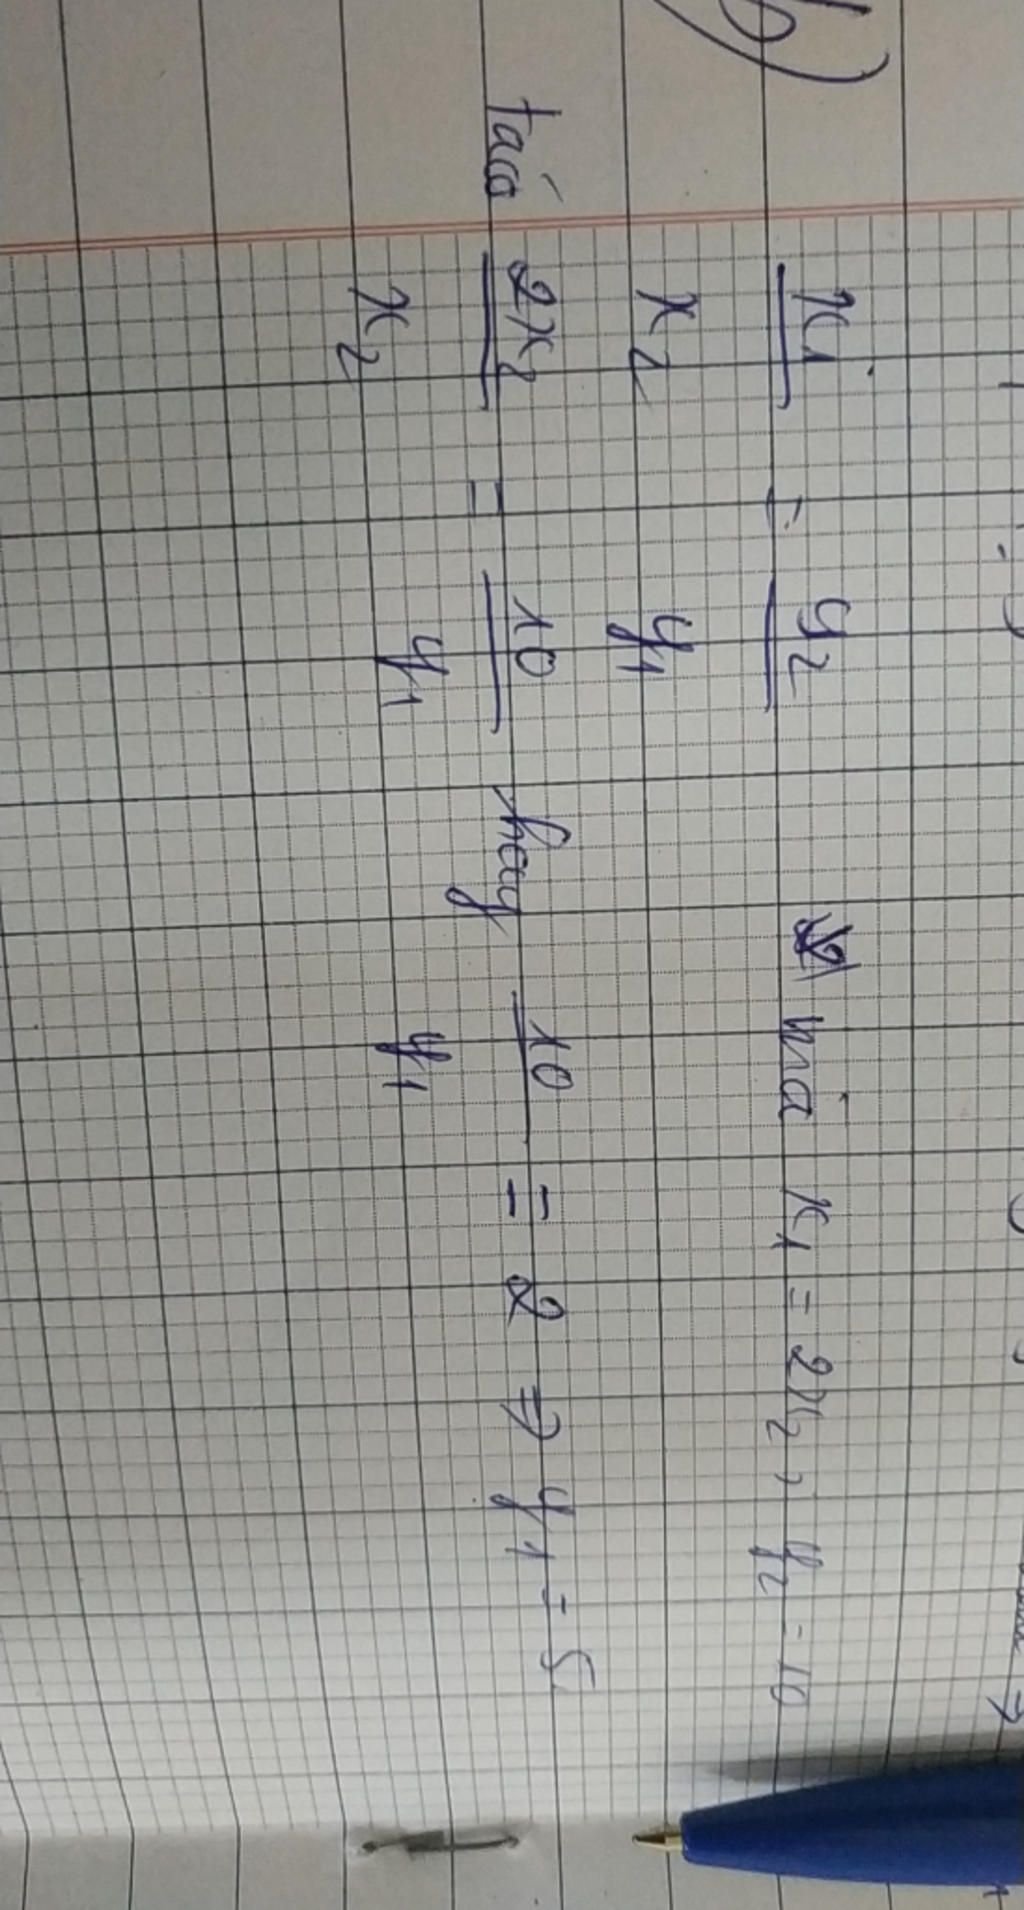 b)
x₁/x₂ = y₂/y₁ mà x₁ = 2x₂, y₂ = 10
ta có 2x₂/x₂ = 10/y₁ hay 10/y₁ = 2 ⇒ y₁ = 5